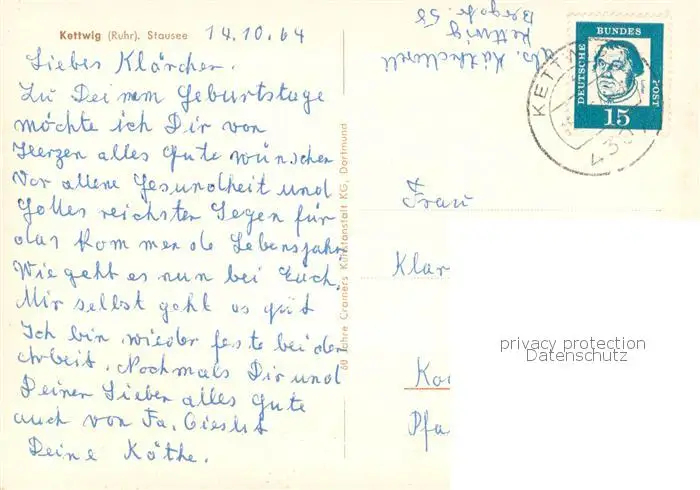 Kettwig (Ruhr). Stausee 14.10.64
Liebes Klärchen.
Zu Deinem Geburtstage
möchte ich Dir von
Herzen alles Gute wünschen
Vor allene Gesundheit und
Gottes reichster Segen für
das kommende Lebensjahr.
Wie geht es nun bei Euch.
Mir selbst geht es gut
Ich bin wieder feste bei der
Arbeit. Nochmals Dir und
Deiner Lieben alles Gute
auch von Fa.
Deine Käthe.
60 Jahre Cramers Kunstanstalt KG, Dortmund
Abs.
Kettwig
Bergstr. 58
DEUTSCHE BUNDES POST
15
KETTW
Frau
Klar
Ko
Pfa
privacy protection
Datenschutz